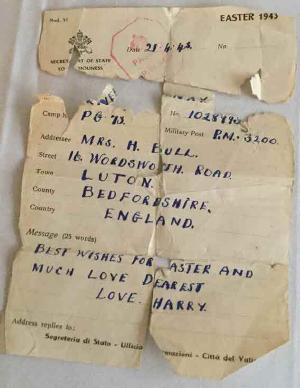 Mod. 51
EASTER 1943
Date 21.4.43. No
SECRET OF STATE
HOLINESS
Camp N. PG 73. No 1028
Military Post P.M. 3200.
Addressee MRS. H. BULL.
Street 16. WORDSWORTH. ROAD.
Town LUTON.
County BEDFORDSHIRE.
Country ENGLAND.
Message (25 words)
BEST WISHES FOR ASTER AND
MUCH LOVE DEAREST
LOVE. HARRY.
Address replies to:
Segreteria di Stato - Ufficio mazioni - Città del Vati